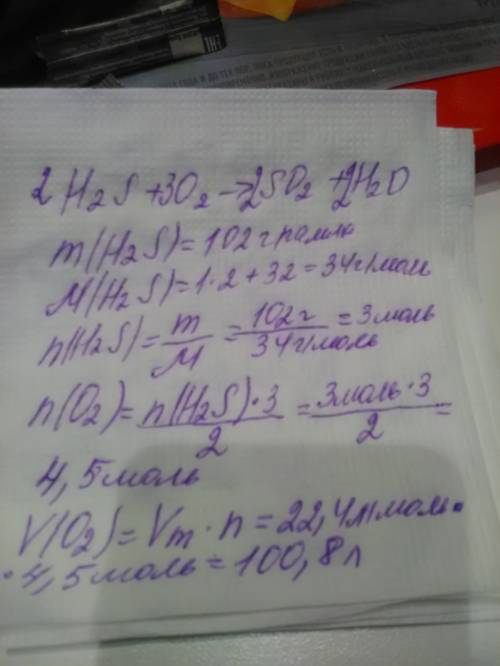 2H₂S + 3O₂ → 2SO₂ + 2H₂O
m(H₂S) = 102 грамма
M(H₂S) = 1·2 + 32 = 34 г/моль
n(H₂S) = m/M = 102 г/34 г/моль = 3 моль
n(O₂) = n(H₂S)·3/2 = 3 моль·3/2 =
4,5 моль
V(O₂) = Vm · n = 22,4 л/моль ·
· 4,5 моль = 100,8 л